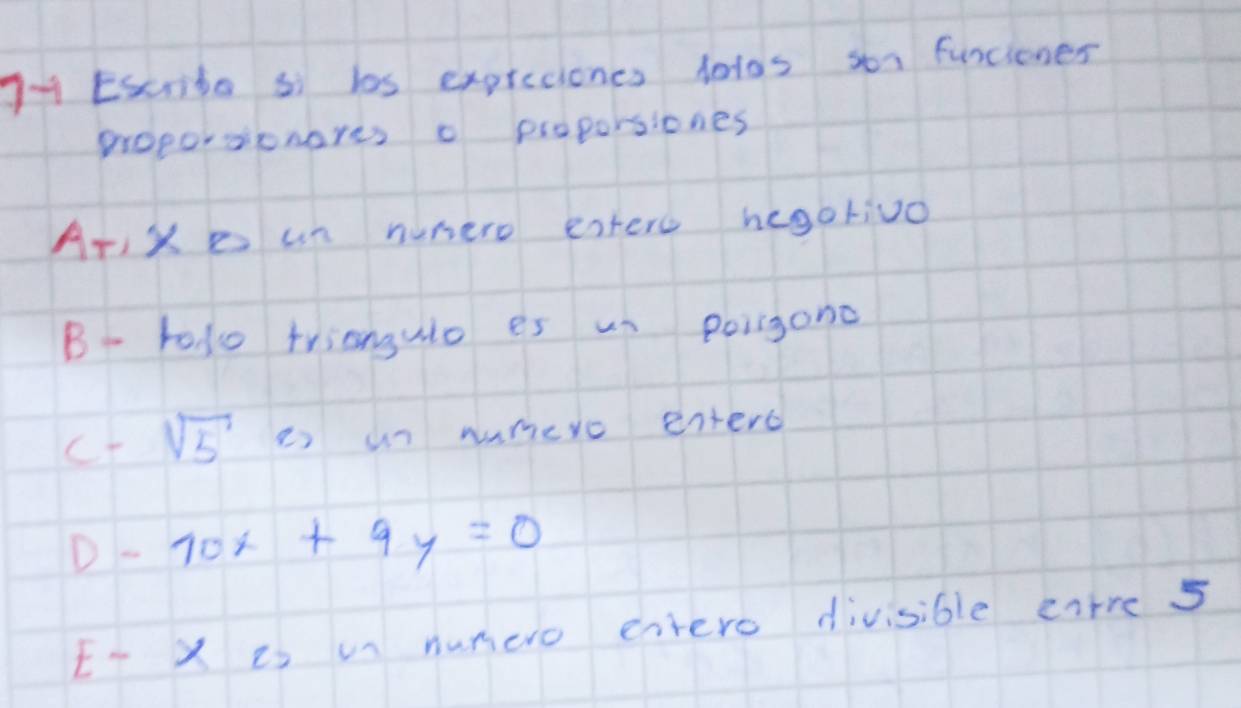 1- Escriba si las expreciones dadas son funciones
proporsionares o proporsiones
A-, x es un numero entero negativo
B- todo triangulo es un poligono
C- √5 es un numero entero
D- 10x + 9y = 0
E- x es un numero entero divisible entre 5